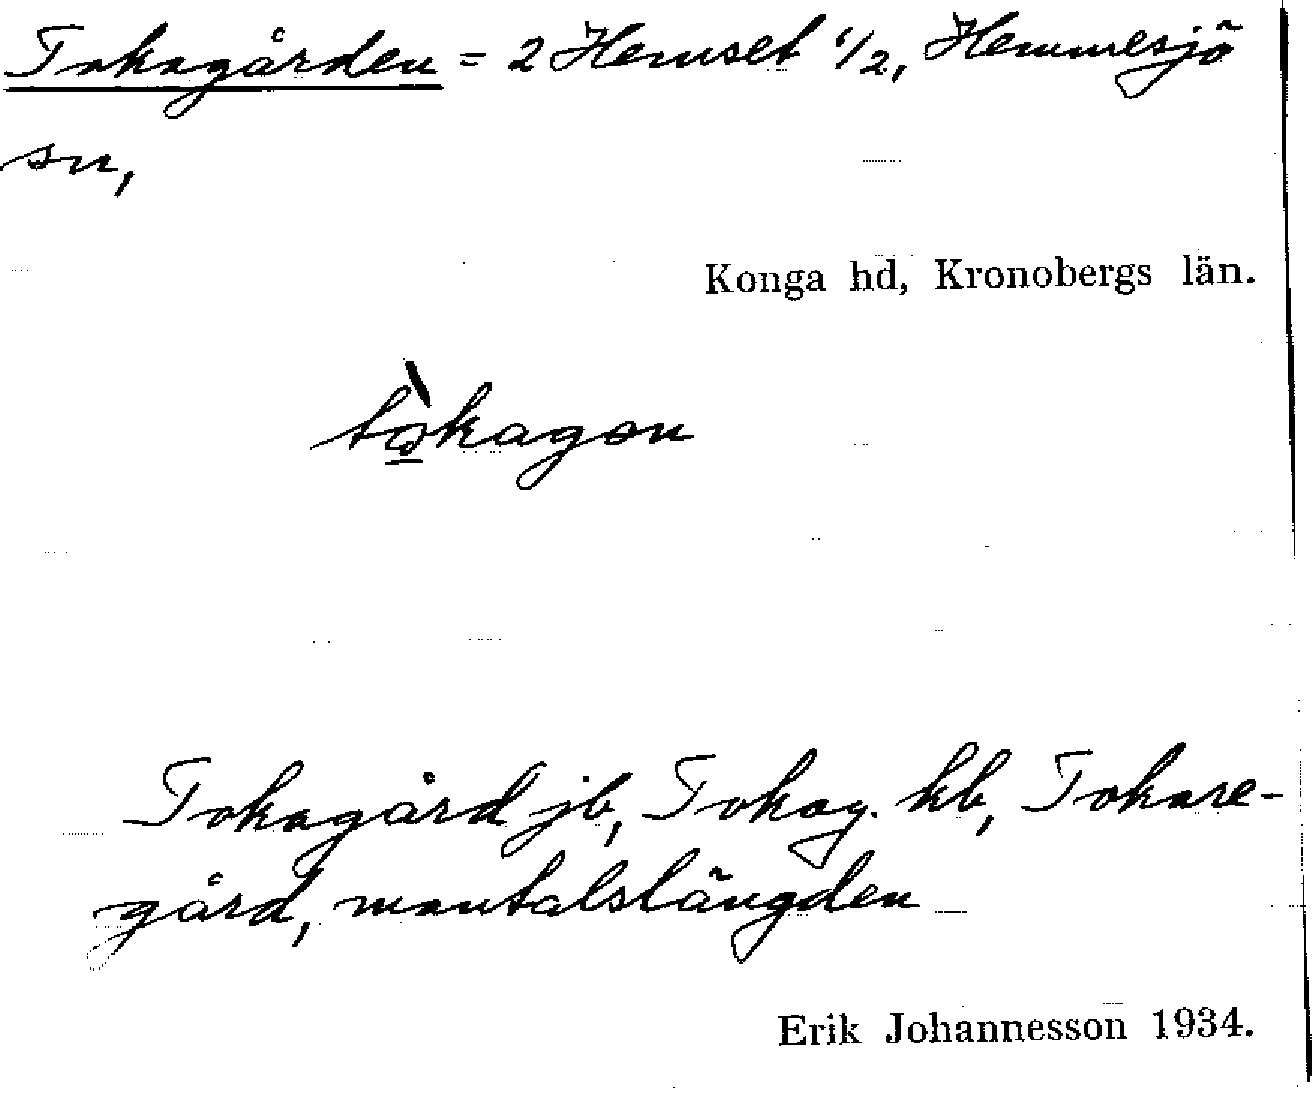 Tokagården = 2 Hemset 1/2, Hemmesjö
sn,
Konga hd, Kronobergs län.
tò̱kagɵn
Tokagård jb, Tokag. kb, Tokare-
gård, mantalslängden
Erik Johannesson 1934.